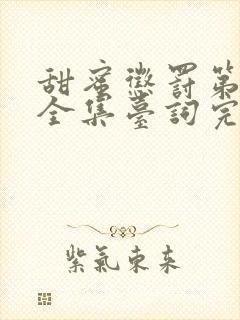 甜蜜懲罰第
全集臺詞完
紫氣東来